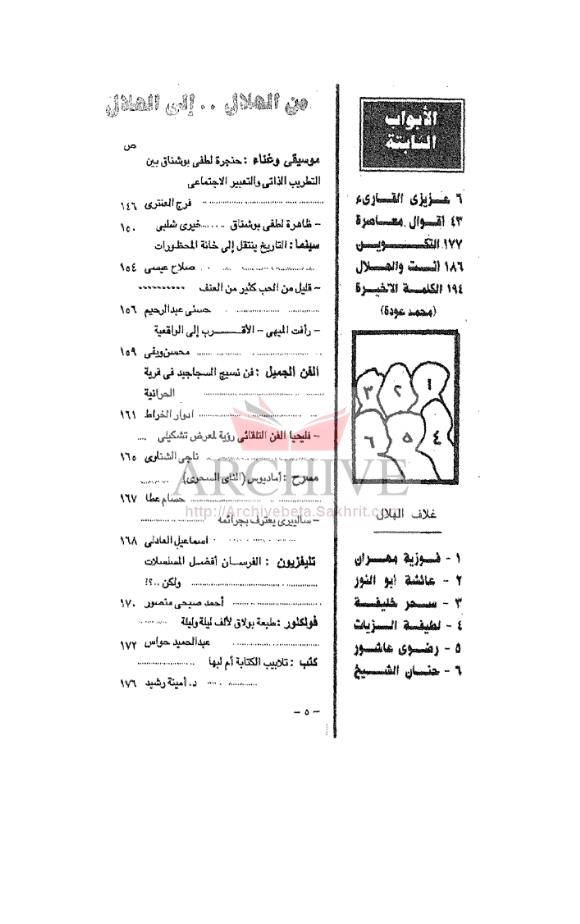 الأبواب
الثابتة
٦ عزيزى القارىء
٤٣ أقوال معاصرة
١٧٧ التكوين
١٨٦ أنت والهلال
١٩٤ الكلمة الأخيرة
(محمد عودة)
١
٢
٣
٤
٥
٦
غلاف الهلال
١ - فوزية مهران
٢ - عائشة أبو النور
٣ - سحر خليفة
٤ - لطيفة الزيات
٥ - رضوى عاشور
٦ - حنان الشيخ
من الهلال .. إلى الهلال
ص
موسيقى وغناء : حنجرة لطفى بوشناق بين
التطريب الذاتى والتعبير الاجتماعى
فرج العنترى ١٤٦
- ظاهرة لطفى بوشناق ...... خيرى شلبى ١٥٠
سينما : التاريخ ينتقل إلى خانة المحظورات
صلاح عيسى ١٥٤
- قليل من الحب كثير من العنف
حسنى عبدالرحيم ١٥٦
- رأفت الميهى - الأقرب إلى الراقعية
محسن ويفى ١٥٩
الفن الجميل : فن نسيج السجاجيد فى قرية
الحرانية
ادوار الخراط ١٦١
- فليحيا الفن التلقائى رؤية لمعرض تشكيلى
ناجى الشناوى ١٦٥
مسرح : أماديوس (الناى السحرى)
حسام عطا ١٦٧
- سالييرى يعترف بجرائمه
اسماعيل العادلى ١٦٨
تليفزيون : الفرسان أفضل المسلسلات
ولكن ..؟!
أحمد صبحى منصور ١٧٠
فولكلور : طبعة بولاق لألف ليلة وليلة
عبدالحميد حواس ١٧٢
كتب : تلابيب الكتابة أم لبها
د. أمينة رشيد ١٧٦
- ٥ -
ARCHIVE
http://Archivebeta.Sakhrit.co